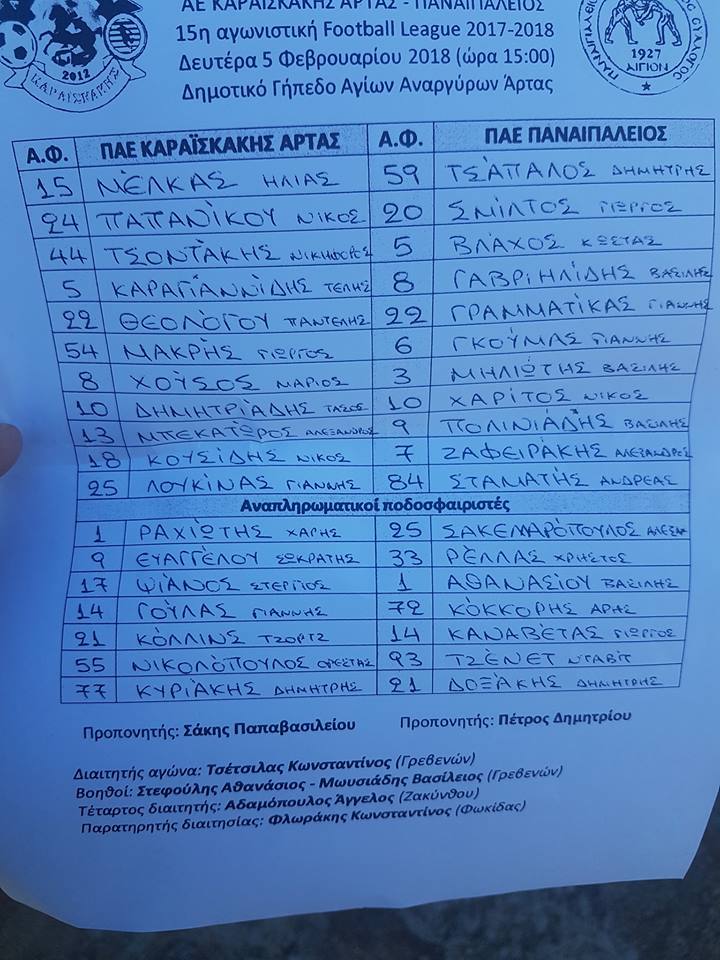 ΑΕ ΚΑΡΑΪΣΚΑΚΗΣ ΑΡΤΑΣ - ΠΑΝΑΙΓΙΑΛΕΙΟΣ
15η αγωνιστική Football League 2017-2018
Δευτέρα 5 Φεβρουαρίου 2018 (ώρα 15:00)
Δημοτικό Γήπεδο Αγίων Αναργύρων Άρτας
2012
ΚΑΡΑΪΣΚΑΚΗΣ
1927
ΑΙΓΙΟΝ
Α.Φ. ΠΑΕ ΚΑΡΑΪΣΚΑΚΗΣ ΑΡΤΑΣ Α.Φ. ΠΑΕ ΠΑΝΑΙΓΙΑΛΕΙΟΣ
15 ΝΈΛΚΑΣ ΗΛΙΑΣ 59 ΤΣΆΠΑΛΟΣ ΔΗΜΗΤΡΗΣ
24 ΠΑΠΑΝΊΚΟΥ ΝΙΚΟΣ 20 ΣΜΙΛΤΟΣ ΓΙΩΡΓΟΣ
44 ΤΣΟΝΤΆΚΗΣ ΝΙΚΗΦΟΡΟΣ 5 ΒΛΆΧΟΣ ΚΩΣΤΑΣ
5 ΚΑΡΑΓΙΑΝΝΊΔΗΣ ΤΕΛΗΣ 8 ΓΑΒΡΙΗΛΊΔΗΣ ΒΑΣΙΛΗΣ
22 ΘΕΟΛΌΓΟΥ ΠΑΝΤΕΛΗΣ 22 ΓΡΑΜΜΑΤΊΚΑΣ ΓΙΑΝΝΗΣ
54 ΜΑΚΡΉΣ ΓΙΩΡΓΟΣ 6 ΓΚΟΎΜΑΣ ΓΙΑΝΝΗΣ
8 ΧΟΎΣΟΣ ΜΑΡΙΟΣ 3 ΜΗΛΙΏΤΗΣ ΒΑΣΙΛΗΣ
10 ΔΗΜΗΤΡΙΆΔΗΣ ΤΑΣΟΣ 10 ΧΑΡΊΤΟΣ ΝΙΚΟΣ
13 ΜΠΕΚΑΤΏΡΟΣ ΑΛΕΞΑΝΔΡΟΣ 9 ΠΟΛΙΝΙΆΔΗΣ ΒΑΣΙΛΗΣ
18 ΚΟΥΣΊΔΗΣ ΝΙΚΟΣ 7 ΖΑΦΕΙΡΆΚΗΣ ΑΛΕΞΑΝΔΡΟΣ
25 ΛΟΥΚΙΝΑΣ ΓΙΑΝΝΗΣ 84 ΣΤΑΜΑΤΉΣ ΑΝΔΡΕΑΣ
Αναπληρωματικοί ποδοσφαιριστές
1 ΡΑΧΙΏΤΗΣ ΧΑΡΗΣ 25 ΣΑΚΕΜΑΡΌΠΟΥΛΟΣ ΑΛΕΞΑΝ
9 ΕΥΑΓΓΈΛΟΥ ΣΩΚΡΑΤΗΣ 33 ΡΈΛΛΑΣ ΧΡΗΣΤΟΣ
17 ΨΙΆΝΟΣ ΣΤΕΡΓΙΟΣ 1 ΑΘΑΝΑΣΙΟΥ ΒΑΣΙΛΗΣ
14 ΓΟΎΛΑΣ ΓΙΑΝΝΗΣ 72 ΚΌΚΚΟΡΗΣ ΑΡΗΣ
21 ΚΌΛΛΙΝΣ ΤΖΟΡΤΖ 14 ΚΑΝΑΒΈΤΑΣ ΓΙΩΡΓΟΣ
55 ΝΙΚΟΛΌΠΟΥΛΟΣ ΟΡΕΣΤΑΣ 93 ΤΖΈΝΕΤ ΝΤΑΒΙΤ
77 ΚΥΡΙΆΚΗΣ ΔΗΜΗΤΡΗΣ 21 ΔΟΞΆΚΗΣ ΔΗΜΗΤΡΗΣ
Προπονητής: Σάκης Παπαβασιλείου Προπονητής: Πέτρος Δημητρίου
Διαιτητής αγώνα: Τσέτσιλας Κωνσταντίνος (Γρεβενών)
Βοηθοί: Στεφούλης Αθανάσιος - Μωυσιάδης Βασίλειος (Γρεβενών)
Τέταρτος διαιτητής: Αδαμόπουλος Άγγελος (Ζακύνθου)
Παρατηρητής διαιτησίας: Φλωράκης Κωνσταντίνος (Φωκίδας)